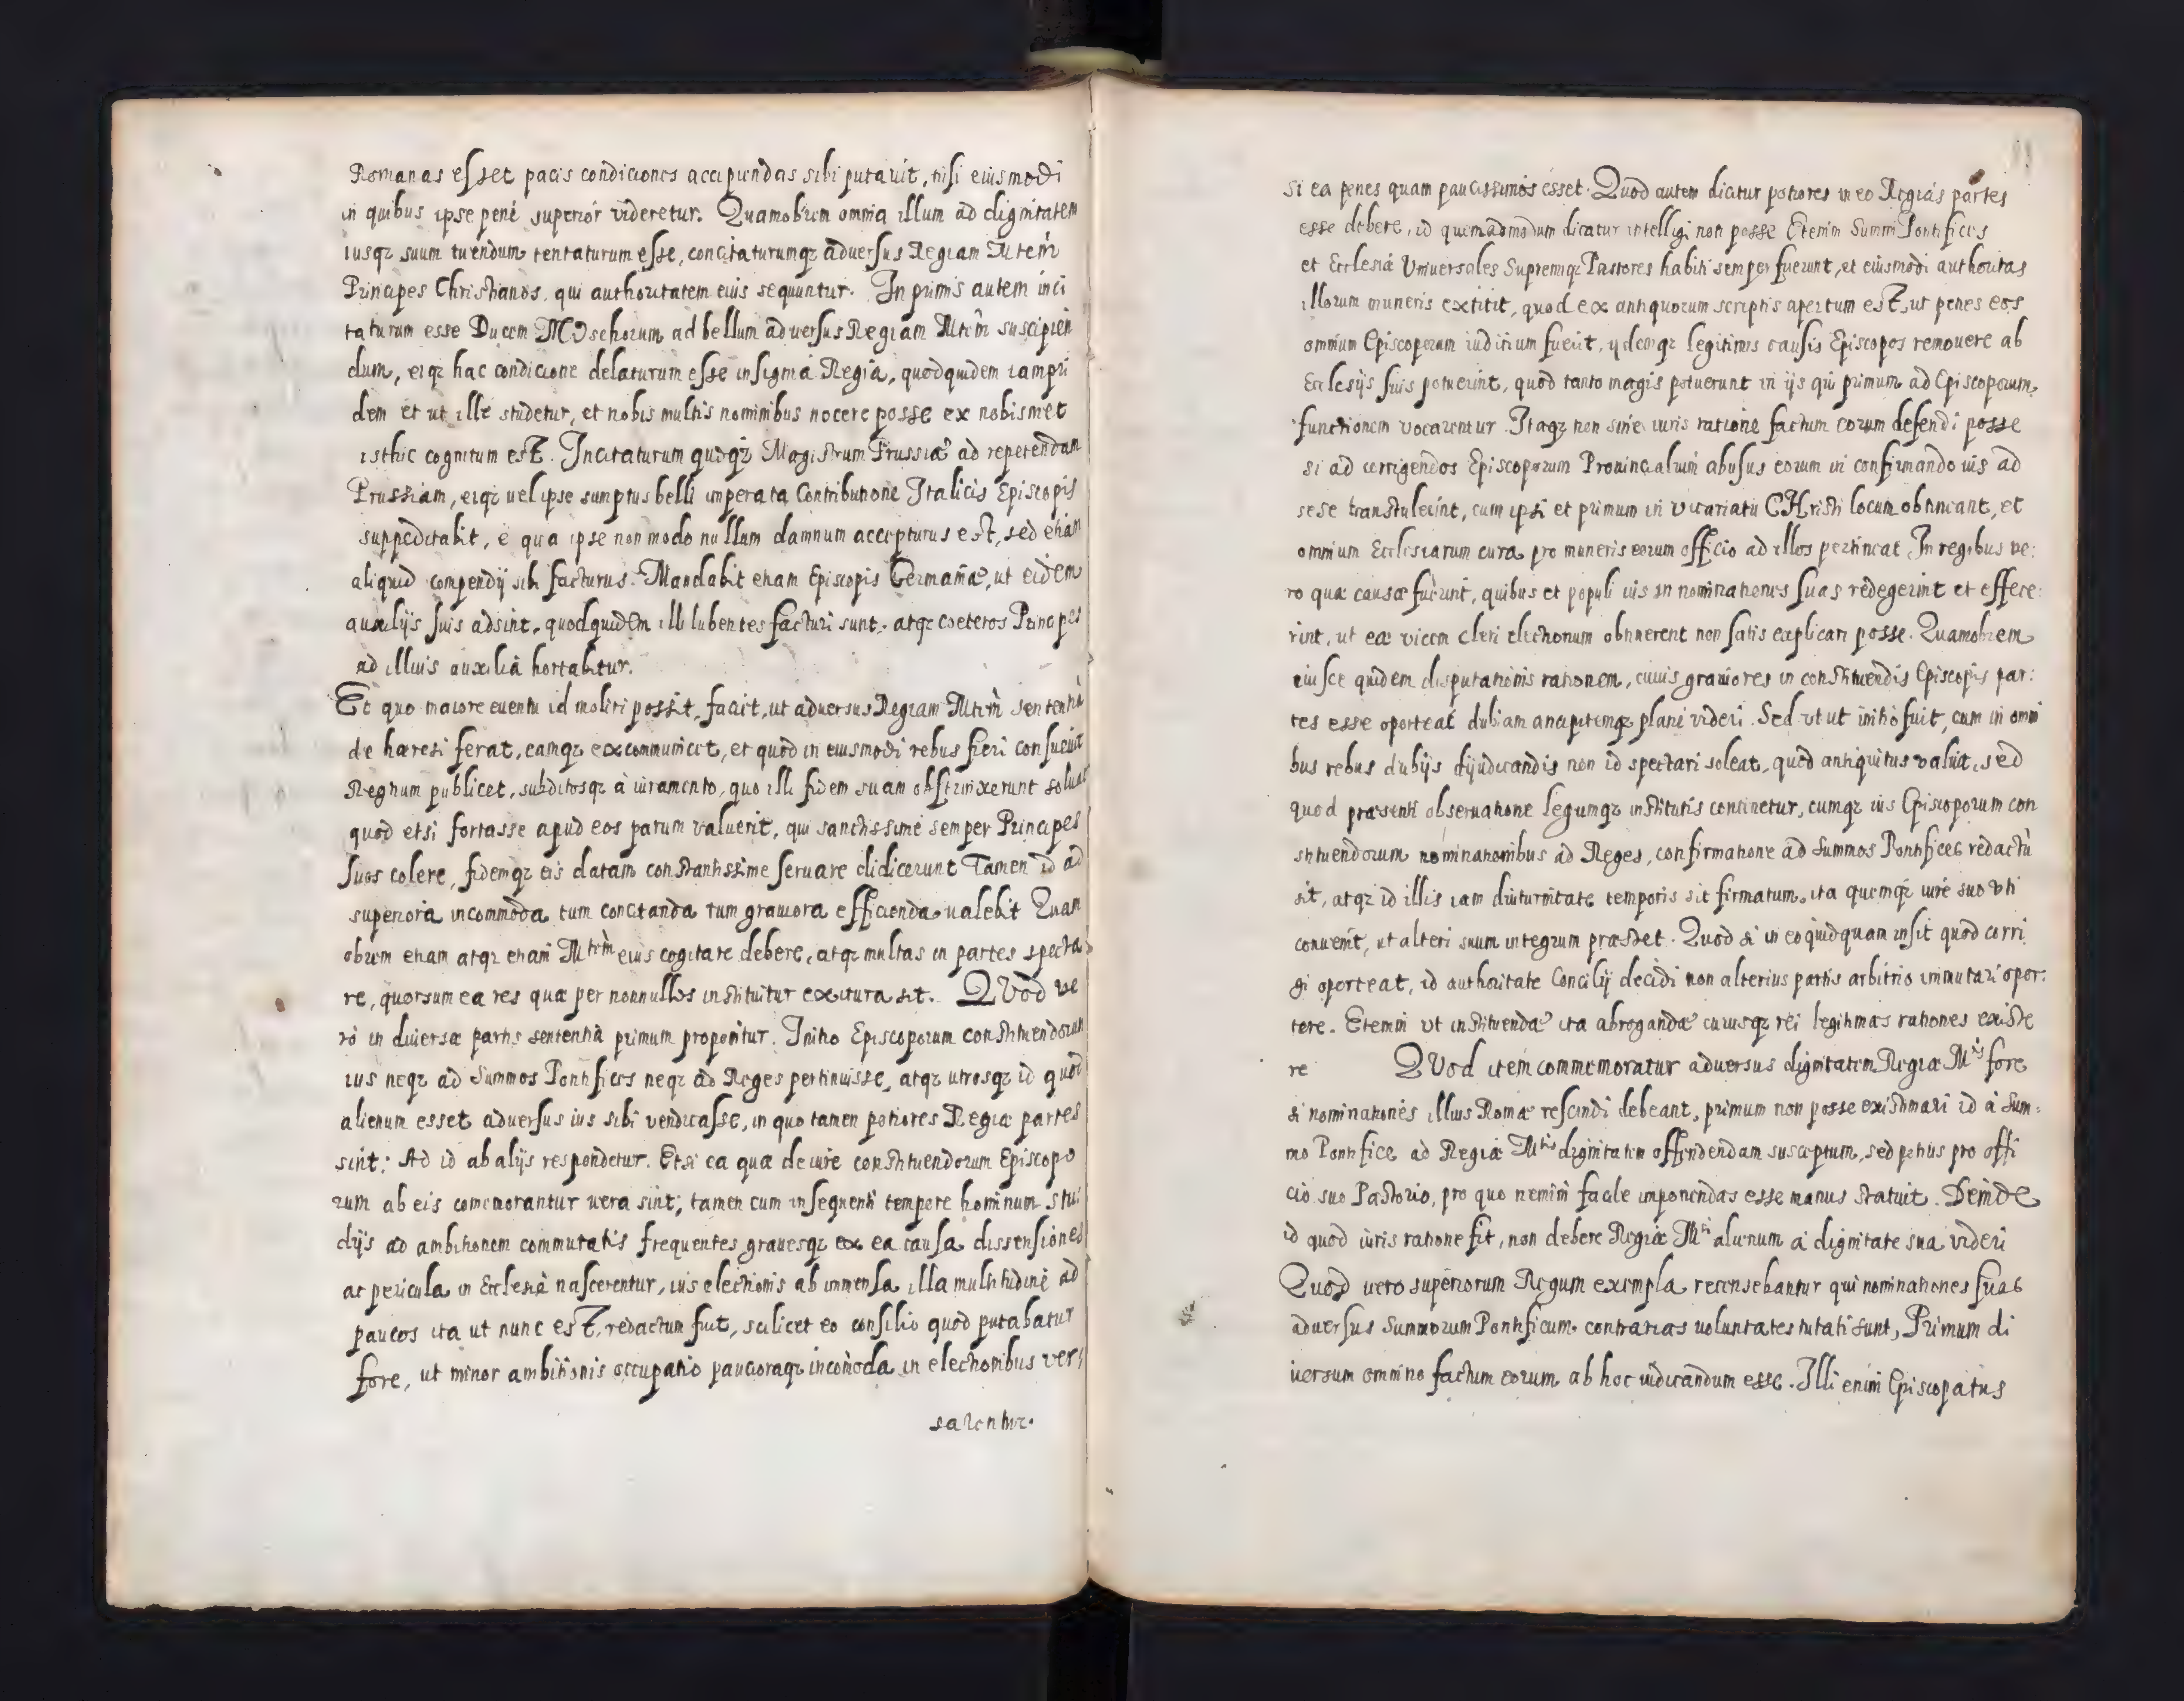 Romanas esset pacis condiciones accipiendas sibi putauit, nisi eiusmodi
in quibus ipse pene superiór videretur. Quamobrem omnia illum ad dignitatem
iusqz suum tuendum tentaturum esse, concitaturumqz aduersus Regiam Mtem
Principes Christianos, qui authoritatem eius sequuntur. In primis autem inci
taturum esse Ducem MOschorum ad bellum aduersus Regiam Mtem suscipien
dum, eiqz hac condicione delaturum esse insignia Regia, quodquidem iampri
dem et ut ille studetur, et nobis multis nominibus nocere posse ex nobismet
isthic cognitum esT. Incitaturum quoqz Magistrum Prussiæ ad repetendam
Prussiam, eiqz uel ipse sumptus belli imperata Contributione Italicis Episcopis
suppeditabit, e qua ipse non modo nullum damnum accepturus esT, sed etiam
aliquid compendij sibi facturus. Mandabit etiam Episcopis Germaniæ, ut eidem
auxilijs suis adsint, quodquidem illi lubentes facturi sunt, atqz coeteros Principes
ad illius auxilia hortabitur.
Et quo maiore euentu id moliri possit, faciet, ut aduersus Regiam Mtem sententia
de hæresi ferat, eamqz excommunicet, et quod in eiusmodi rebus fieri consueuit
Regnum publicet, subditosqz à iuramento, quo illi fidem suam obstrinxerunt soluat
quod etsi fortasse apud eos parum valuerit, qui sanctissime semper Principes
suos colere, fidemqz eis datam constantissime seruare didicerunt Tamen id ad
superiora incommoda tum concitanda tum grauiora efficienda ualebit Quam
obrem etiam atqz etiam Mtem eius cogitare debere, atqz multas in partes specta
re, quorsum ea res quæ per nonnullos instituitur exitura sit. QVod ve
rò in diuersæ partis sententia primum proponitur. Initio Episcoporum constituendorum
ius neqz ad Summos Pontifices neqz ad Reges pertinuisse, atqz utrosqz id quod
alienum esset aduersus ius sibi vendicasse, in quo tamen potiores Regiæ partes
sint; Ad id ab alijs respondetur. Etsi ea quæ de iure constituendorum Episcopo
rum ab eis comemorantur uera sint; tamen cum insequenti tempore hominum stu
dijs ad ambitionem commutatis frequentes grauesqz ex ea causa dissensiones
ac pericula in Ecclesia nascerentur, ius electionis ab immensa illa multitudine ad
paucos ita ut nunc esT, redactum fuit, scilicet eo consilio quod putabatur
fore, ut minor ambitionis occupatio paucioraqz incomoda in electionibus ver
sarentur.
si ea penes quam paucissimos esset. Quod autem dicitur potiores in eo Regias partes
esse debere, id quemadmodum dicatur intelligi non posse Etenim Summi Pontifices
et Ecclesiæ Vniuersales Supremiqz Pastores habiti semper fuerunt, et eiusmodi authoritas
illorum muneris extitit, quod ex antiquorum scriptis apertum esT, ut penes eos
omnium Episcoporum iudicium fuerit, ijdemqz legitimis causis Episcopos remouere ab
Ecclesijs suis potuerint, quod tanto magis potuerunt in ijs qui primum ad Episcoporum
functionem vocarentur. Itaqz non sine iuris ratione factum eorum defendi posse
si ad corrigendos Episcoporum Prouincialium abusus eorum in confirmando ius ad
sese transtulerint, cum ipsi et primum in vicariatu CHristi locum obtineant, et
omnium Ecclesiarum cura pro muneris eorum officio ad illos pertineat In regibus ve:
ro quæ causæ fuerint, quibus et populi ius in nominationes suas redegerint et effece:
rint, ut eæ vicem cleri electionum obtinerent non satis explicari posse. Quamobrem
eiusce quidem disputationis rationem, cuius grauiores in constituendis Episcopis par:
tes esse oporteat dubiam ancipitemqz plane videri. Sed ut ut initio fuit, cum in omni
bus rebus dubijs dijudicandis non id spectari soleat, quod antiquitus valuit, sed
quod præsenti obseruatione legumqz institutis continetur, cumqz ius Episcoporum con
stituendorum nominationibus ad Reges, confirmatione ad Summos Pontifices redactu
sit, atqz id illis iam diuturnitate temporis sit firmatum, ita quemqz iure suo vti
conuenit, ut alteri suum integrum præstet. Quod si in eo quidquam insit quod corri
gi oporteat, id authoritate Concilij decidi non alterius partis arbitrio immutari opor:
tere. Etenim vt instituendæ ita abrogandæ cuiusqz rei legitimas rationes existe
re QVod item commemoratur aduersus dignitatem Regiæ Mtis fore
si nominationes illius Romæ rescindi debeant, primum non posse existimari id à Sum:
mo Pontifice ad Regiæ Mtis dignitatem offendendam susceptum, sed potius pro offi
cio suo Pastorio, pro quo nemini facile imponendas esse manus statuit. Deinde
id quod iuris ratione fit, non debere Regiæ Mti alienum a dignitate sua videri
Quod uero superiorum Regum exempla recensebantur qui nominationes suas
aduersus Summorum Pontificum contrarias uoluntates tutati sunt, Primum di
uersum omnino factum eorum ab hoc iudicandum esse. Illi enim Episcopatus